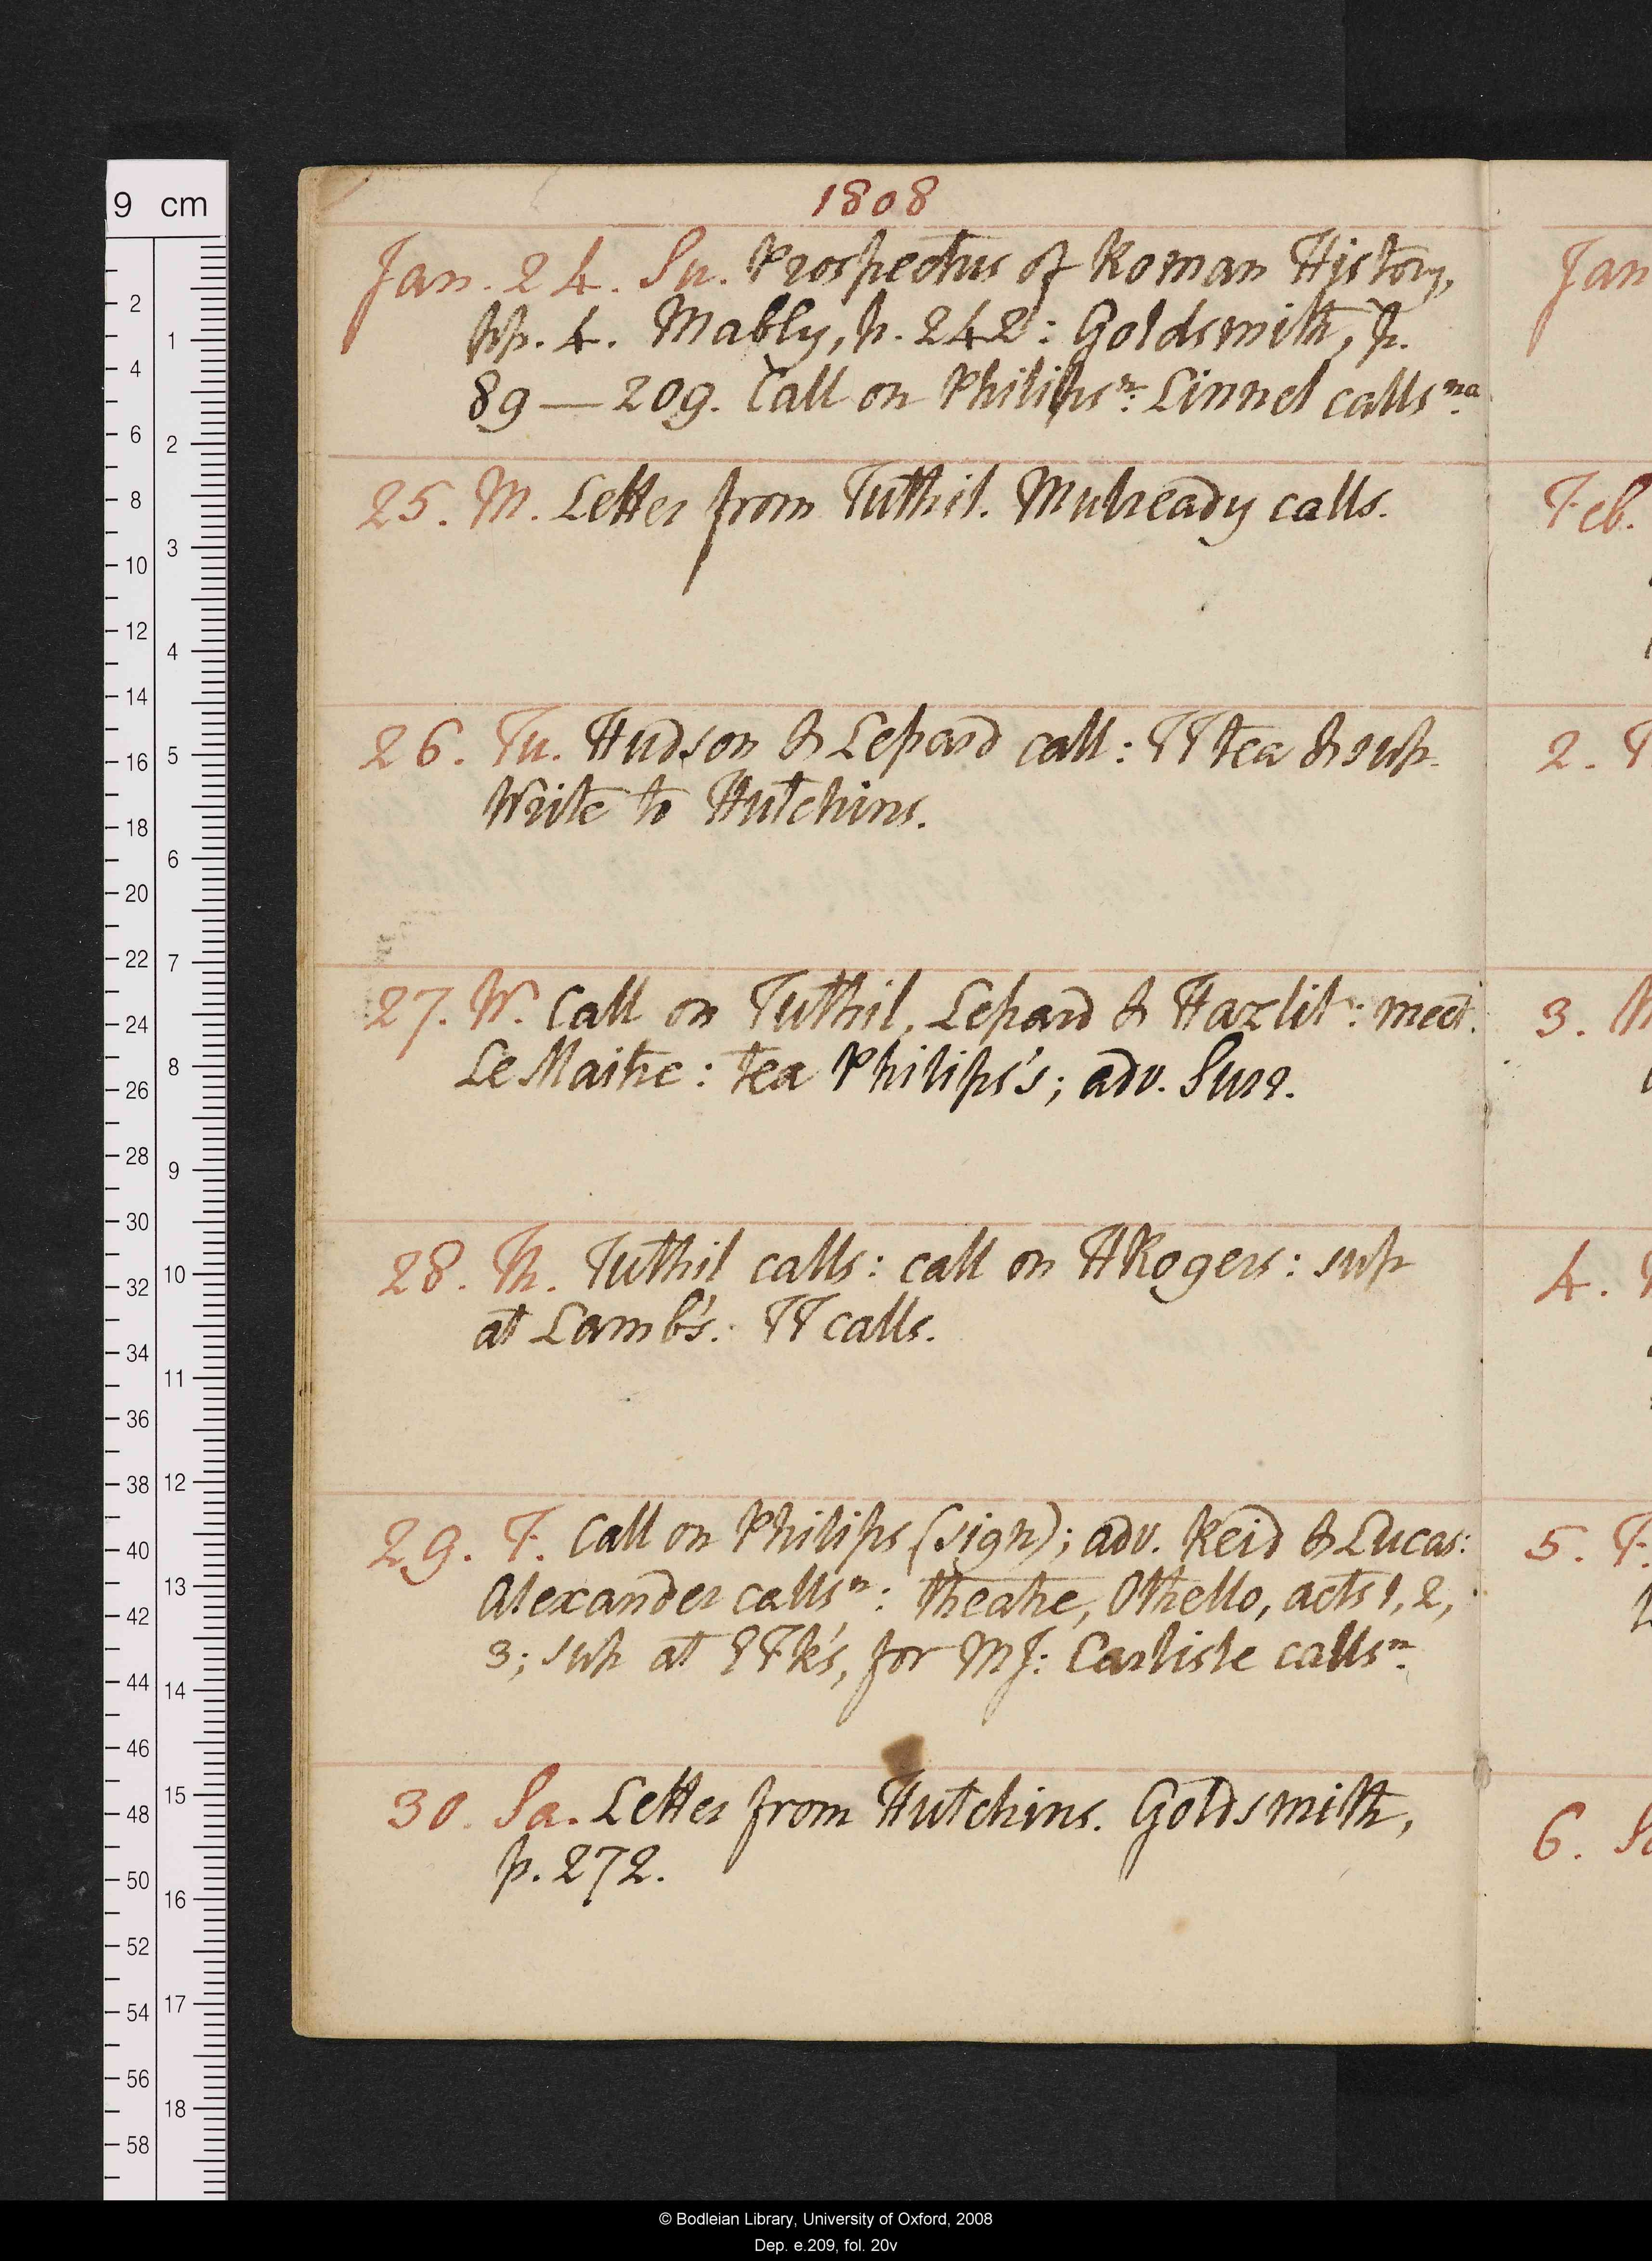 1808
Jan. 24. Su. Prospectus of Roman History,
pp. 4. Mably, p. 242: Goldsmith, p.
89—209. Call on Philips n: Linnel calls na.
25. M. Letter from Tuthil. Mulready calls.
26. Tu. Hudson & Lepard call: TT tea & sup.
Write to Hutchins.
27. W. Call on Tuthil, Lepard & Hazlit: meet
Le Maitre: tea Philips's; adv. Surr.
28. Th. Tuthil calls: call on HRogers: sup
at Lamb's: TT calls.
29. F. Call on Philips (sign); adv. Reid & Lucas:
Alexander calls n: theatre, Othello, acts 1, 2,
3; sup at EFk's, for MJ: Carlisle calls n.
30. Sa. Letter from Hutchins. Goldsmith,
p. 272.
Jan
Feb.
2. T
3.
4.
5. F.
6. Sa
9 cm
© Bodleian Library, University of Oxford, 2008
Dep. e.209, fol. 20v